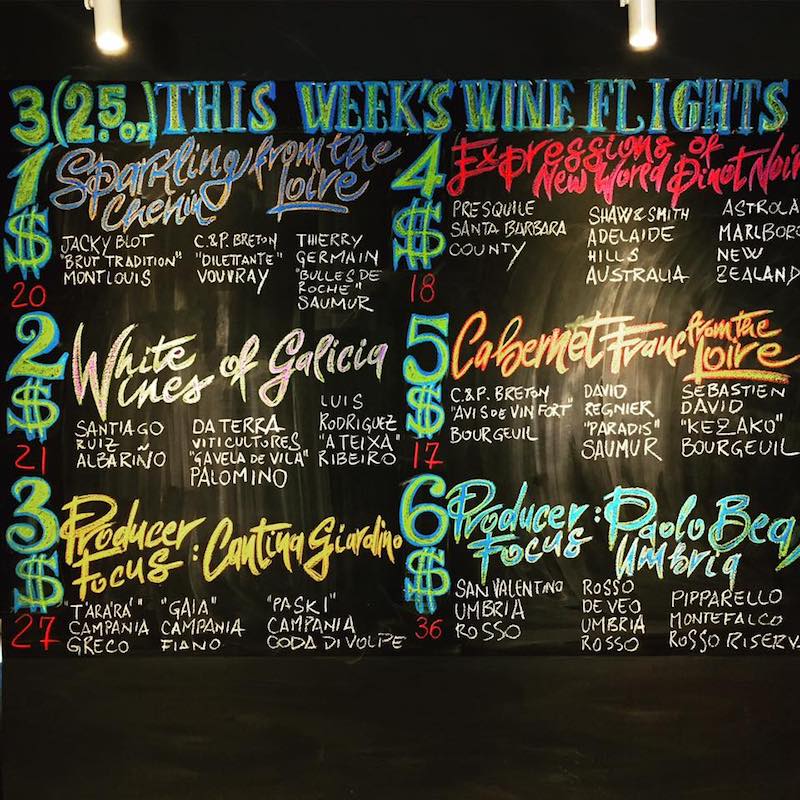 3 (2.5 oz) THIS WEEK'S WINE FLIGHTS
1 Sparkling from the
Chenin Loire
$ 20
JACKY BLOT
"BRUT TRADITION"
MONTLOUIS
C.&P. BRETON
"DILETTANTE"
VOUVRAY
THIERRY
GERMAIN
"BULLES DE
ROCHE"
SAUMUR
2 White
Wines of Galicia
$ 21
SANTIAGO
RUIZ
ALBARIÑO
DA TERRA
VITICULTORES
"GAVELA DE VILA"
PALOMINO
LUIS
RODRIGUEZ
"A TEIXA"
RIBEIRO
3 Producer
Focus : Cantina Giardino
$ 27
"T'ARA'RA'"
CAMPANIA
GRECO
"GAIA"
CAMPANIA
FIANO
"PASKI"
CAMPANIA
CODA DI VOLPE
4 Expressions of
New World Pinot Noir
$ 18
PRESQUILE
SANTA BARBARA
COUNTY
SHAW & SMITH
ADELAIDE
HILLS
AUSTRALIA
ASTROLA
MARLBORO
NEW
ZEALAND
5 Cabernet Franc from the
Loire
$ 17
C.&P. BRETON
"AVIS DE VIN FORT"
BOURGEUIL
DAVID
REGNIER
"PARADIS"
SAUMUR
SEBASTIEN
DAVID
"KEZAKO"
BOURGEUIL
6 Producer : Paolo Bea
Focus Umbria
$ 36
SAN VALENTINO
UMBRIA
ROSSO
ROSSO
DE VEO
UMBRIA
ROSSO
PIPPARELLO
MONTEFALCO
ROSSO RISERV